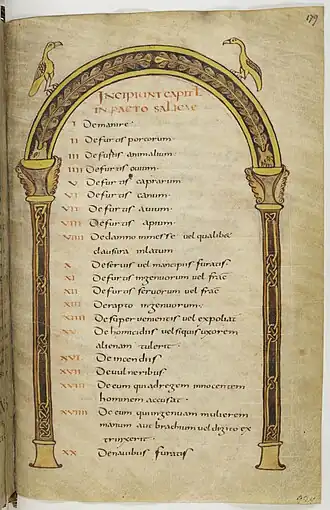 179
INCIPIUNT CAPITL
IN PACTO SALICAE
I De manire·
II De furtis porcorum
III De furtis animalium
IIII De furtis ovium·
V De furtis caprarum
VI De furtis canum·
VII De furtis avium·
VIII De furtis apium·
VIIII De damno in messe vel qualibet
clausura inlatum
X De servis vel mancipiis furatis·
XI De furtis ingenuorum vel fract
XII De furtis servorum vel fract
XIII De rapto ingenuorum·
XIIII De superventis vel expoliat
XV De homicidiis vel siquis uxorem
alienam tulerit·
XVI De incendiis
XVII De vulneribus
XVIII De eum qui ad regem innocentem
hominem accusat·
XVIIII De eum qui ingenuam mulierem
manum aut brachium vel digito ex
trinxerit·
XX De navibus furatis